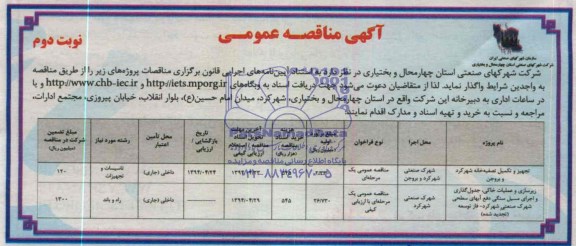 آگهی مناقصه عمومی
نوبت دوم
شرکت شهرکهای صنعتی استان چهارمحال و بختیاری
شرکت شهرکهای صنعتی استان چهارمحال و بختیاری در نظر دارد به استناد آیین‌نامه‌های اجرایی قانون برگزاری مناقصات پروژه‌های زیر را از طریق مناقصه
به واجدین شرایط واگذار نماید. لذا از متقاضیان دعوت می‌شود جهت دریافت اسناد به وبگاه‌های http://iets.mporg.ir و http://www.chb-iec.ir و یا
در ساعات اداری به دبیرخانه این شرکت واقع در استان چهارمحال و بختیاری، شهرکرد، میدان امام حسین(ع)، بلوار انقلاب، خیابان پیروزی، مجتمع ادارات،
مراجعه و نسبت به خرید و تهیه اسناد و مدارک اقدام نمایند:
نام پروژه
محل اجرا
نوع فراخوان
اولیه
تاریخ بازگشایی / ارزیابی
محل تأمین اعتبار
رشته مورد نیاز
مبلغ تضمین شرکت در مناقصه (میلیون ریال)
تجهیز و تکمیل تصفیه‌خانه شهرکرد و بروجن
شهرک صنعتی شهرکرد و بروجن
مناقصه عمومی یک مرحله‌ای
داخلی (جاری)
تاسیسات و تجهیزات
۱۲۰
زیرسازی و عملیات خاکی، جدول‌گذاری و اجرای مسیل سنگی دفع آبهای سطحی شهرک صنعتی شهرکرد- فاز توسعه (تجدید شده)
شهرک صنعتی شهرکرد
مناقصه عمومی یک مرحله‌ای با ارزیابی کیفی
۲۶/۷۳۰
۵۴۵
داخلی (جاری)
راه و باند
پایگاه اطلاع رسانی مناقصه و مزایده